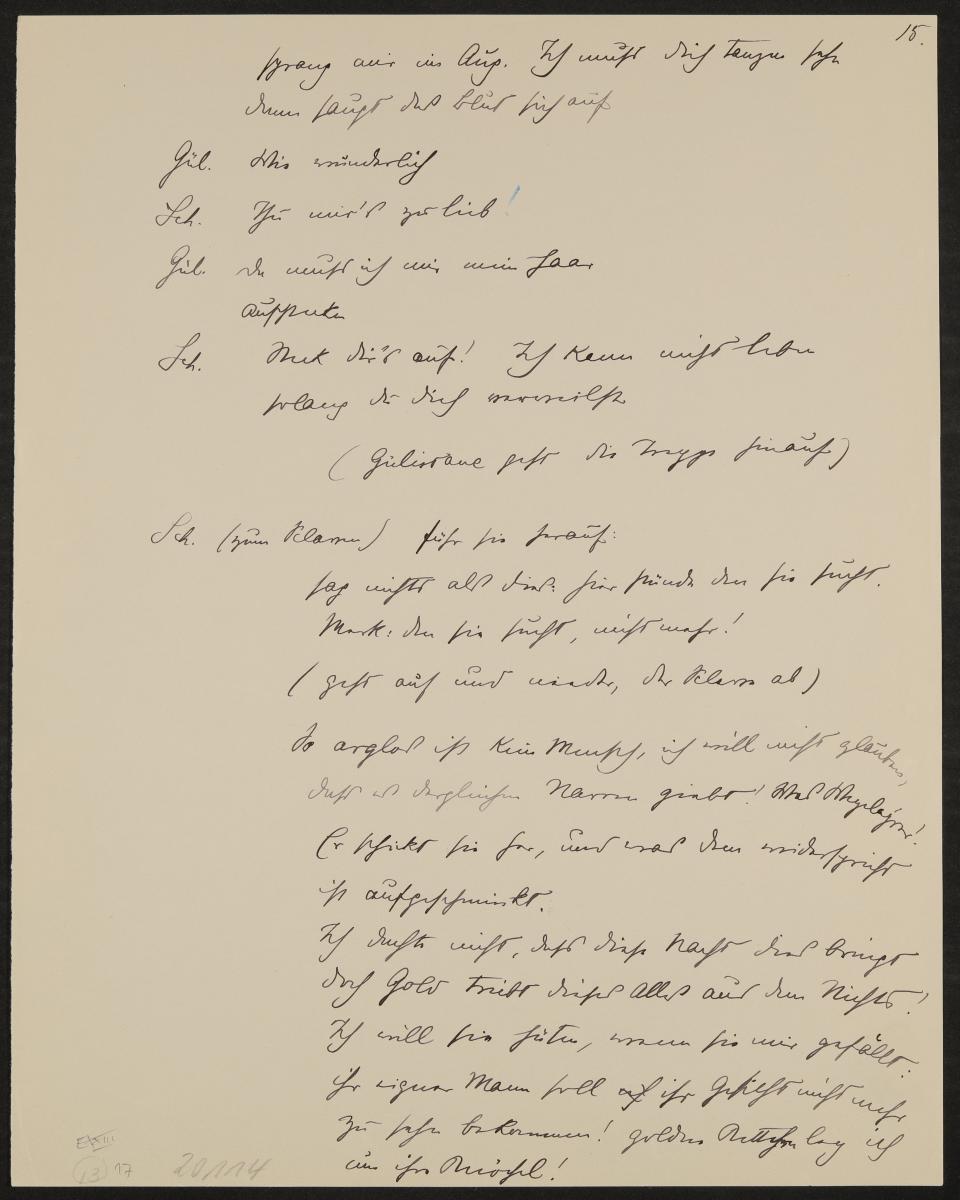 15.
sprang mir ins Aug. Ich muss dich tanzen sehn
dann saugt das Blut sich auf
Gül. Wie wunderlich
Sch. Thu mir's zu lieb!
Gül. Da muss ich mir mein Haar
aufstecken
Sch. Steck dir's auf! Ich kann nicht leben
solang du dich verweilst
(Gülistane geht die Treppe hinauf)
Sch. (zum Sclaven) führ sie herauf:
sag nichts als dies: hier stünde den sie sucht.
Merk: den sie sucht, nicht mehr!
(geht auf und nieder, der Sclave ab)
So arglos ist kein Mensch, ich will nicht glauben,
dass es dergleichen Narren giebt! Was Wegeläufer!
Er schickt sie her, und was dem widerspricht
ist aufgeschminkt.
Ich dachte nicht, dass diese Nacht dies bringt
doch Gold treibt dieses Alles aus dem Nichts!
Ich will sie hüten, wenn sie mir gefällt:
ihr eigner Mann soll ihr Gesicht nicht mehr
zu sehn bekommen! goldne Ketten leg ich
um ihre Knöchel!
17
20114